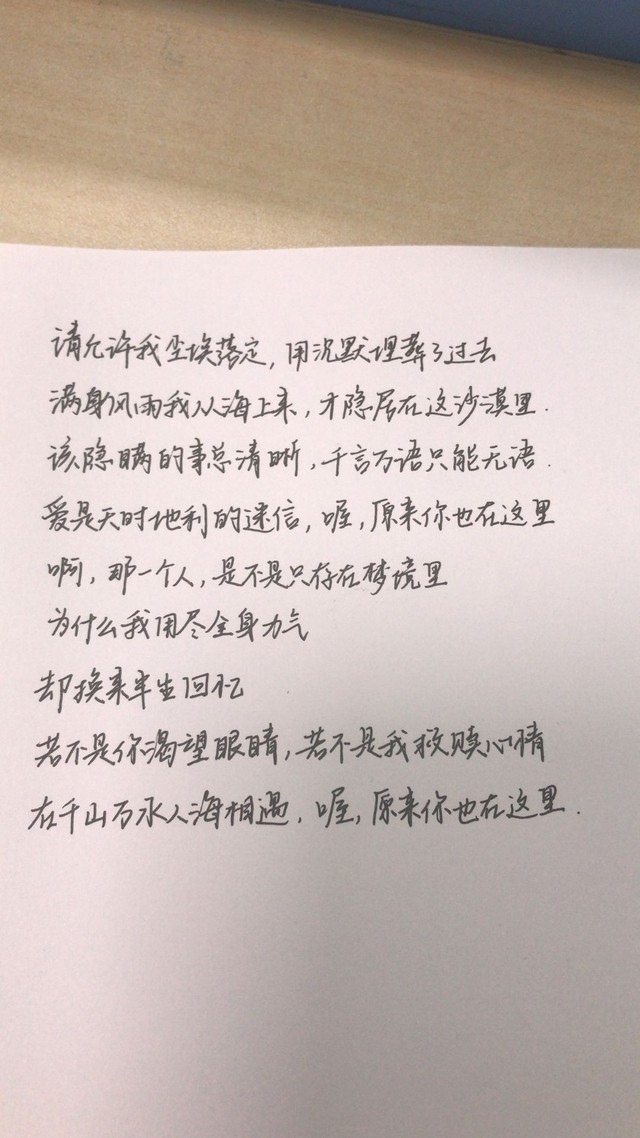 请允许我尘埃落定,用沉默埋葬了过去
满身风雨我从海上来,才隐居在这沙漠里.
该隐瞒的事总清晰,千言万语只能无语.
爱是天时地利的迷信,喔,原来你也在这里
啊,那一个人,是不是只存在梦境里
为什么我用尽全身力气
却换来半生回忆
若不是你渴望眼睛,若不是我救赎心情
在千山万水人海相遇,喔,原来你也在这里.